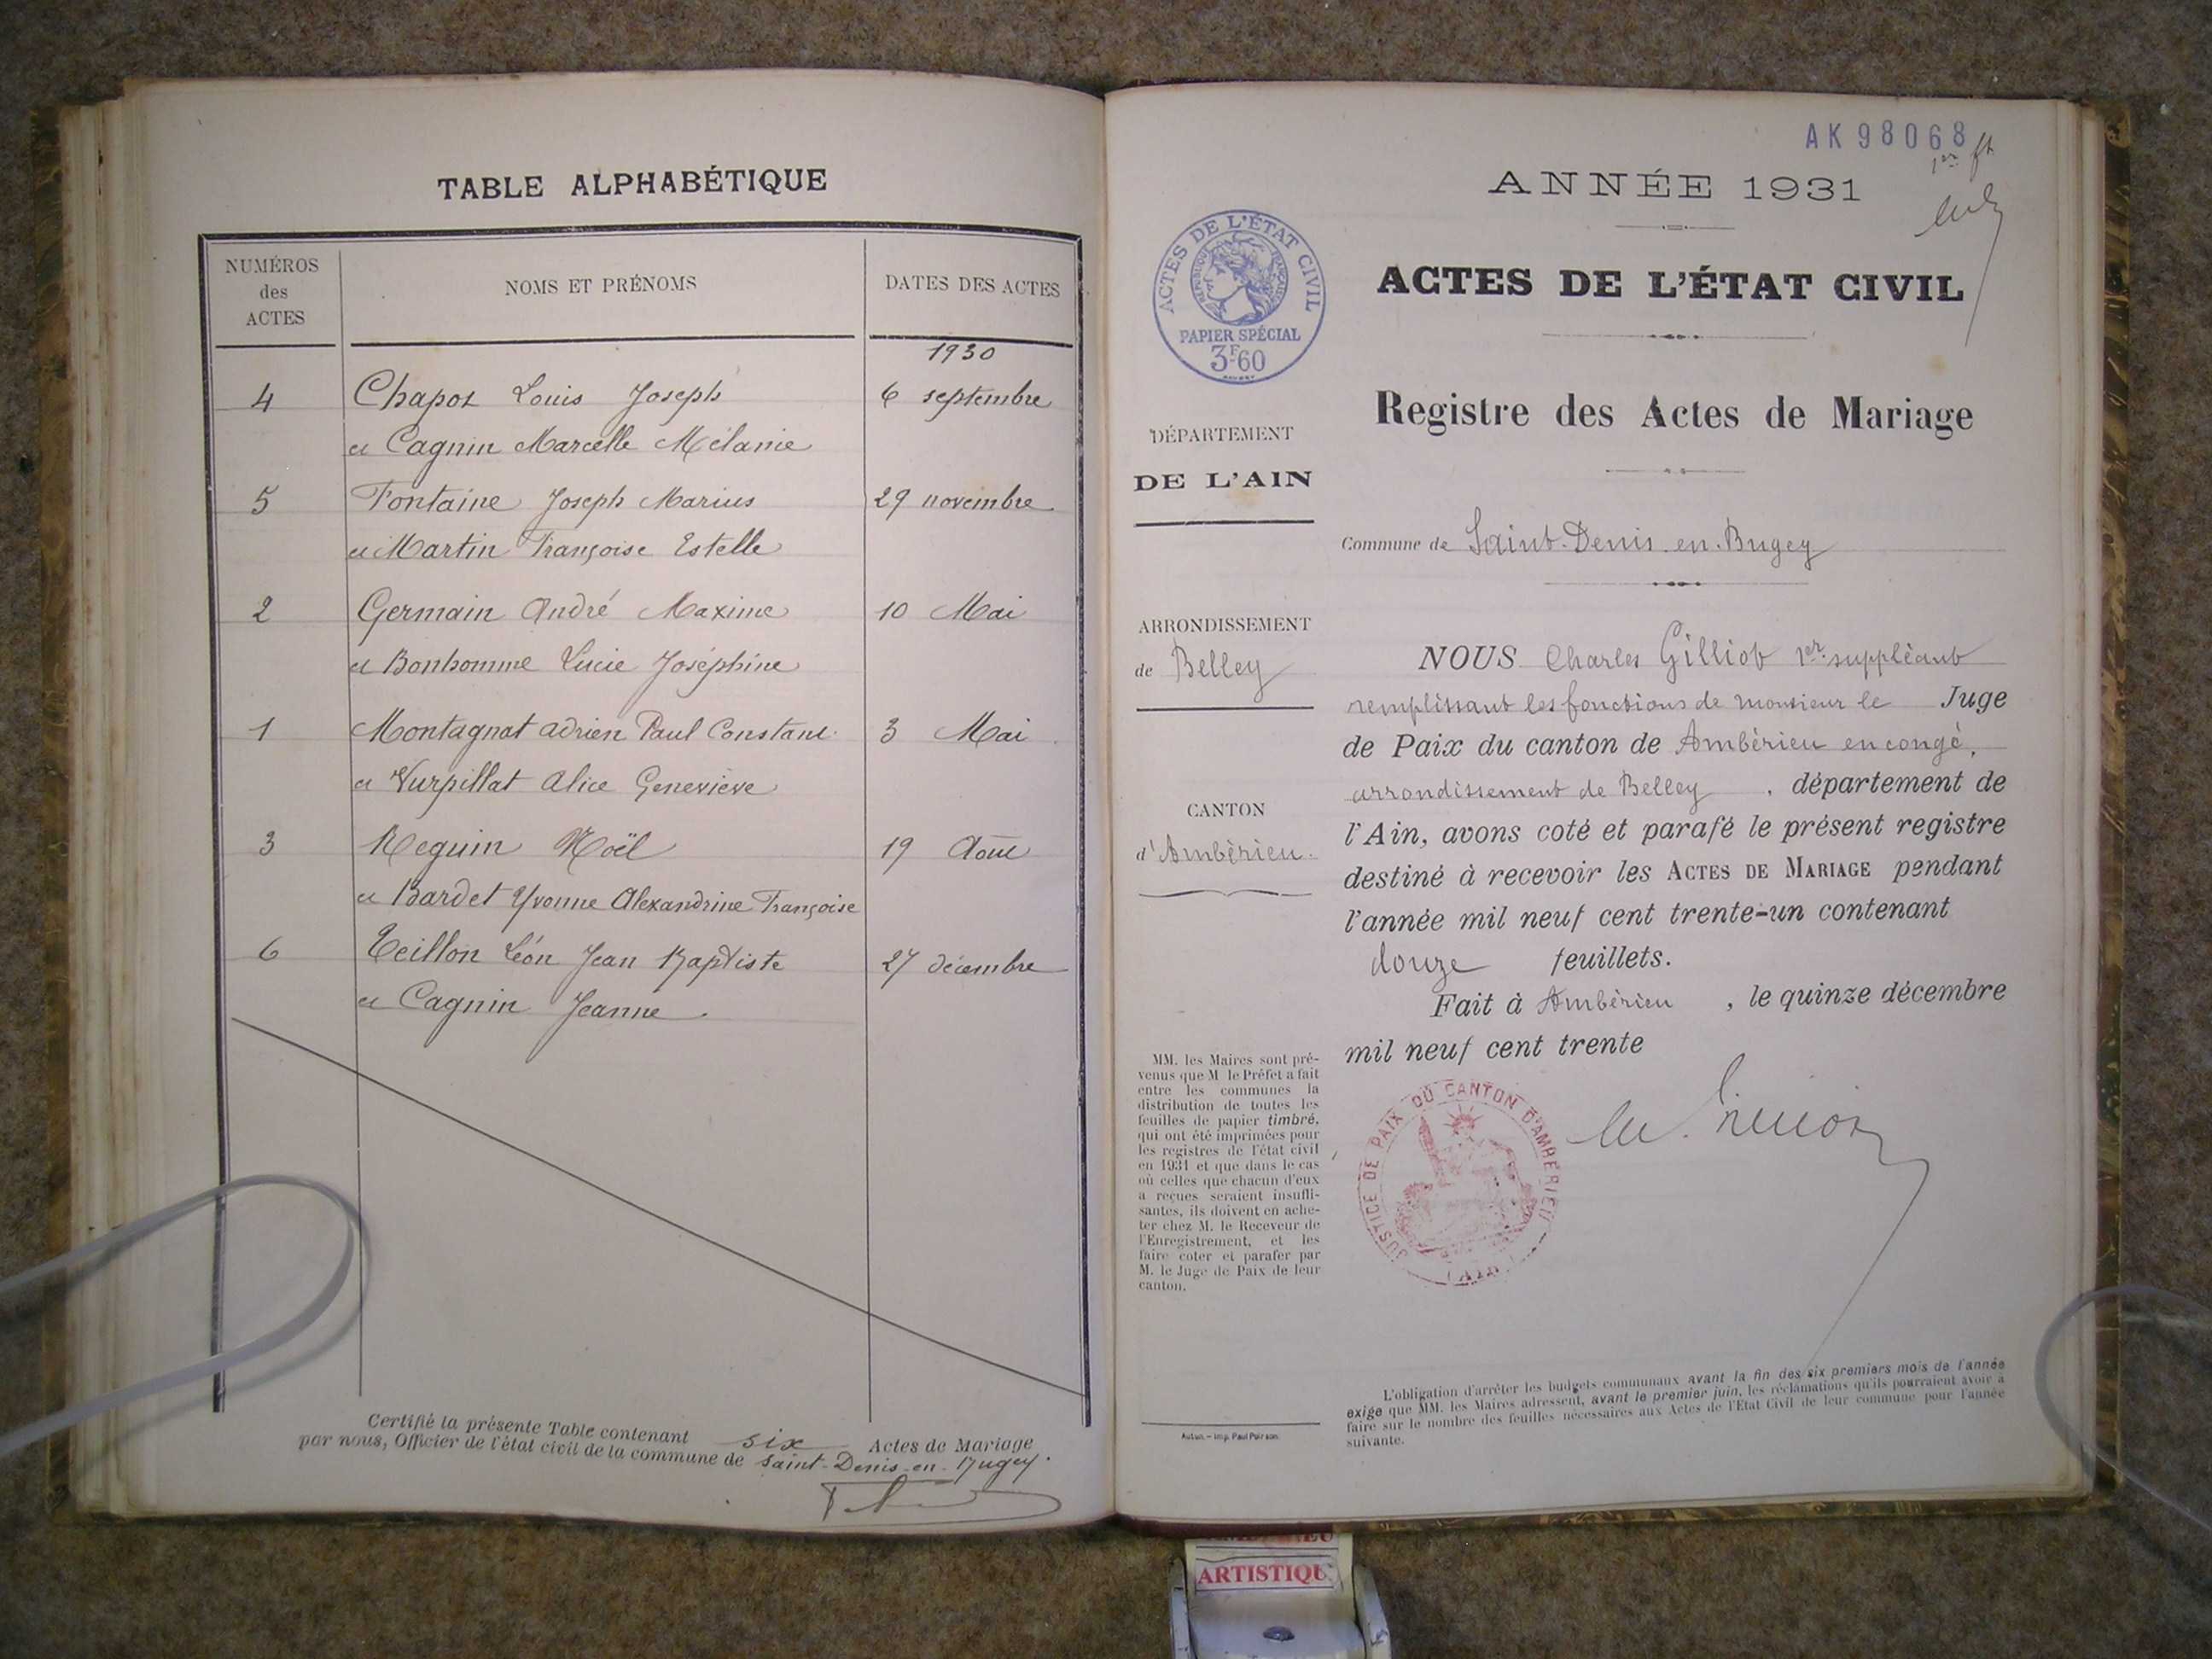 TABLE ALPHABÉTIQUE
NUMÉROS
des
ACTES
NOMS ET PRÉNOMS
DATES DES ACTES
1930
4 Chapot Louis Joseph 6 septembre
et Cagnin Marcelle Mélanie
5 Fontaine Joseph Marius 29 novembre
et Martin Françoise Estelle
2 Germain André Maxime 10 Mai
et Bonhomme Lucie Joséphine
1 Montagnat Adrien Paul Constant 3 Mai
et Vurpillat Alice Geneviève
3 Reguin Noël 19 Août
et Bardet Yvonne Alexandrine Françoise
6 Teillon Léon Jean Baptiste 27 décembre
et Cagnin Jeanne
Certifié la présente Table contenant six Actes de Mariage
par nous, Officier de l'état civil de la commune de Saint-Denis-en-Bugey.
AK 98068
1er ft
ANNÉE 1931
ACTES DE L'ÉTAT CIVIL
RÉPUBLIQUE FRANÇAISE
PAPIER SPÉCIAL
3F60
ACTES DE L'ÉTAT CIVIL
Registre des Actes de Mariage
DÉPARTEMENT
DE L'AIN
Commune de Saint-Denis-en-Bugey
ARRONDISSEMENT
de Belley
CANTON
d'Ambérieu.
NOUS Charles Gilliot 1er suppléant
remplissant les fonctions de monsieur le Juge
de Paix du canton de Ambérieu en congé,
arrondissement de Belley, département de
l'Ain, avons coté et parafé le présent registre
destiné à recevoir les ACTES DE MARIAGE pendant
l'année mil neuf cent trente-un contenant
douze feuillets.
Fait à Ambérieu, le quinze décembre
mil neuf cent trente
MM. les Maires sont pré-
venus que M le Préfet a fait
entre les communes la
distribution de toutes les
feuilles de papier timbré,
qui ont été imprimées pour
les registres de l'état civil
en 1931 et que dans le cas
où celles que chacun d'eux
a reçues seraient insuffi-
santes, ils doivent en ache-
ter chez M. le Receveur de
l'Enregistrement, et les
faire coter et parafer par
M. le Juge de Paix de leur
canton.
JUSTICE DE PAIX DU CANTON D'AMBÉRIEU
(AIN)
Autun. – Imp. Paul Poirson.
L'obligation d'arrêter les budgets communaux avant la fin des six premiers mois de l'année
exige que MM. les Maires adressent, avant le premier juin, les réclamations qu'ils pourraient avoir à
faire sur le nombre des feuilles nécessaires aux Actes de l'Etat Civil de leur commune pour l'année
suivante.
ARTISTIQU